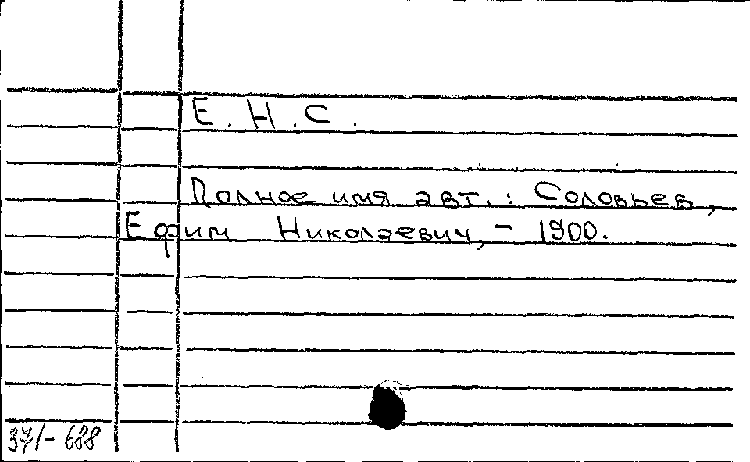 Е. Н. С.
Полное имя авт.: Соловьев,
Ефим Николаевич, – 1900.
371-688